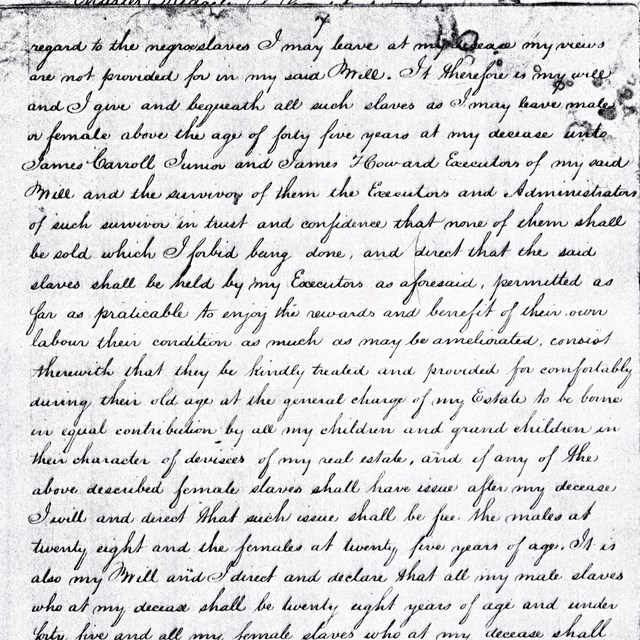 7
regard to the negroe slaves I may leave at my decease my views
are not provided for in my said Will. It therefore is my will
and I give and bequeath all such slaves as I may leave male
or female above the age of forty five years at my decease unto
James Carroll Junior and James Howard Executors of my said
Will and the survivor of them the Executors and Administrators
of such survivor in trust and confidence that none of them shall
be sold which I forbid being done, and direct that the said
slaves shall be held by my Executors as aforesaid, permitted as
far as praticable to enjoy the rewards and benefit of their own
labour their condition as much as may be ameliorated, consist
therewith that they be kindly treated and provided for comfortably
during their old age at the general charge of my Estate to be borne
in equal contribution by all my children and grand children in
their character of devisees of my real estate, and if any of the
above described female slaves shall have issue after my decease
I will and direct that such issue shall be free the males at
twenty eight and the females at twenty five years of age. It is
also my Will and I direct and declare that all my male slaves
who at my decease shall be twenty eight years of age and under
forty five and all my female slaves who at my decease shall